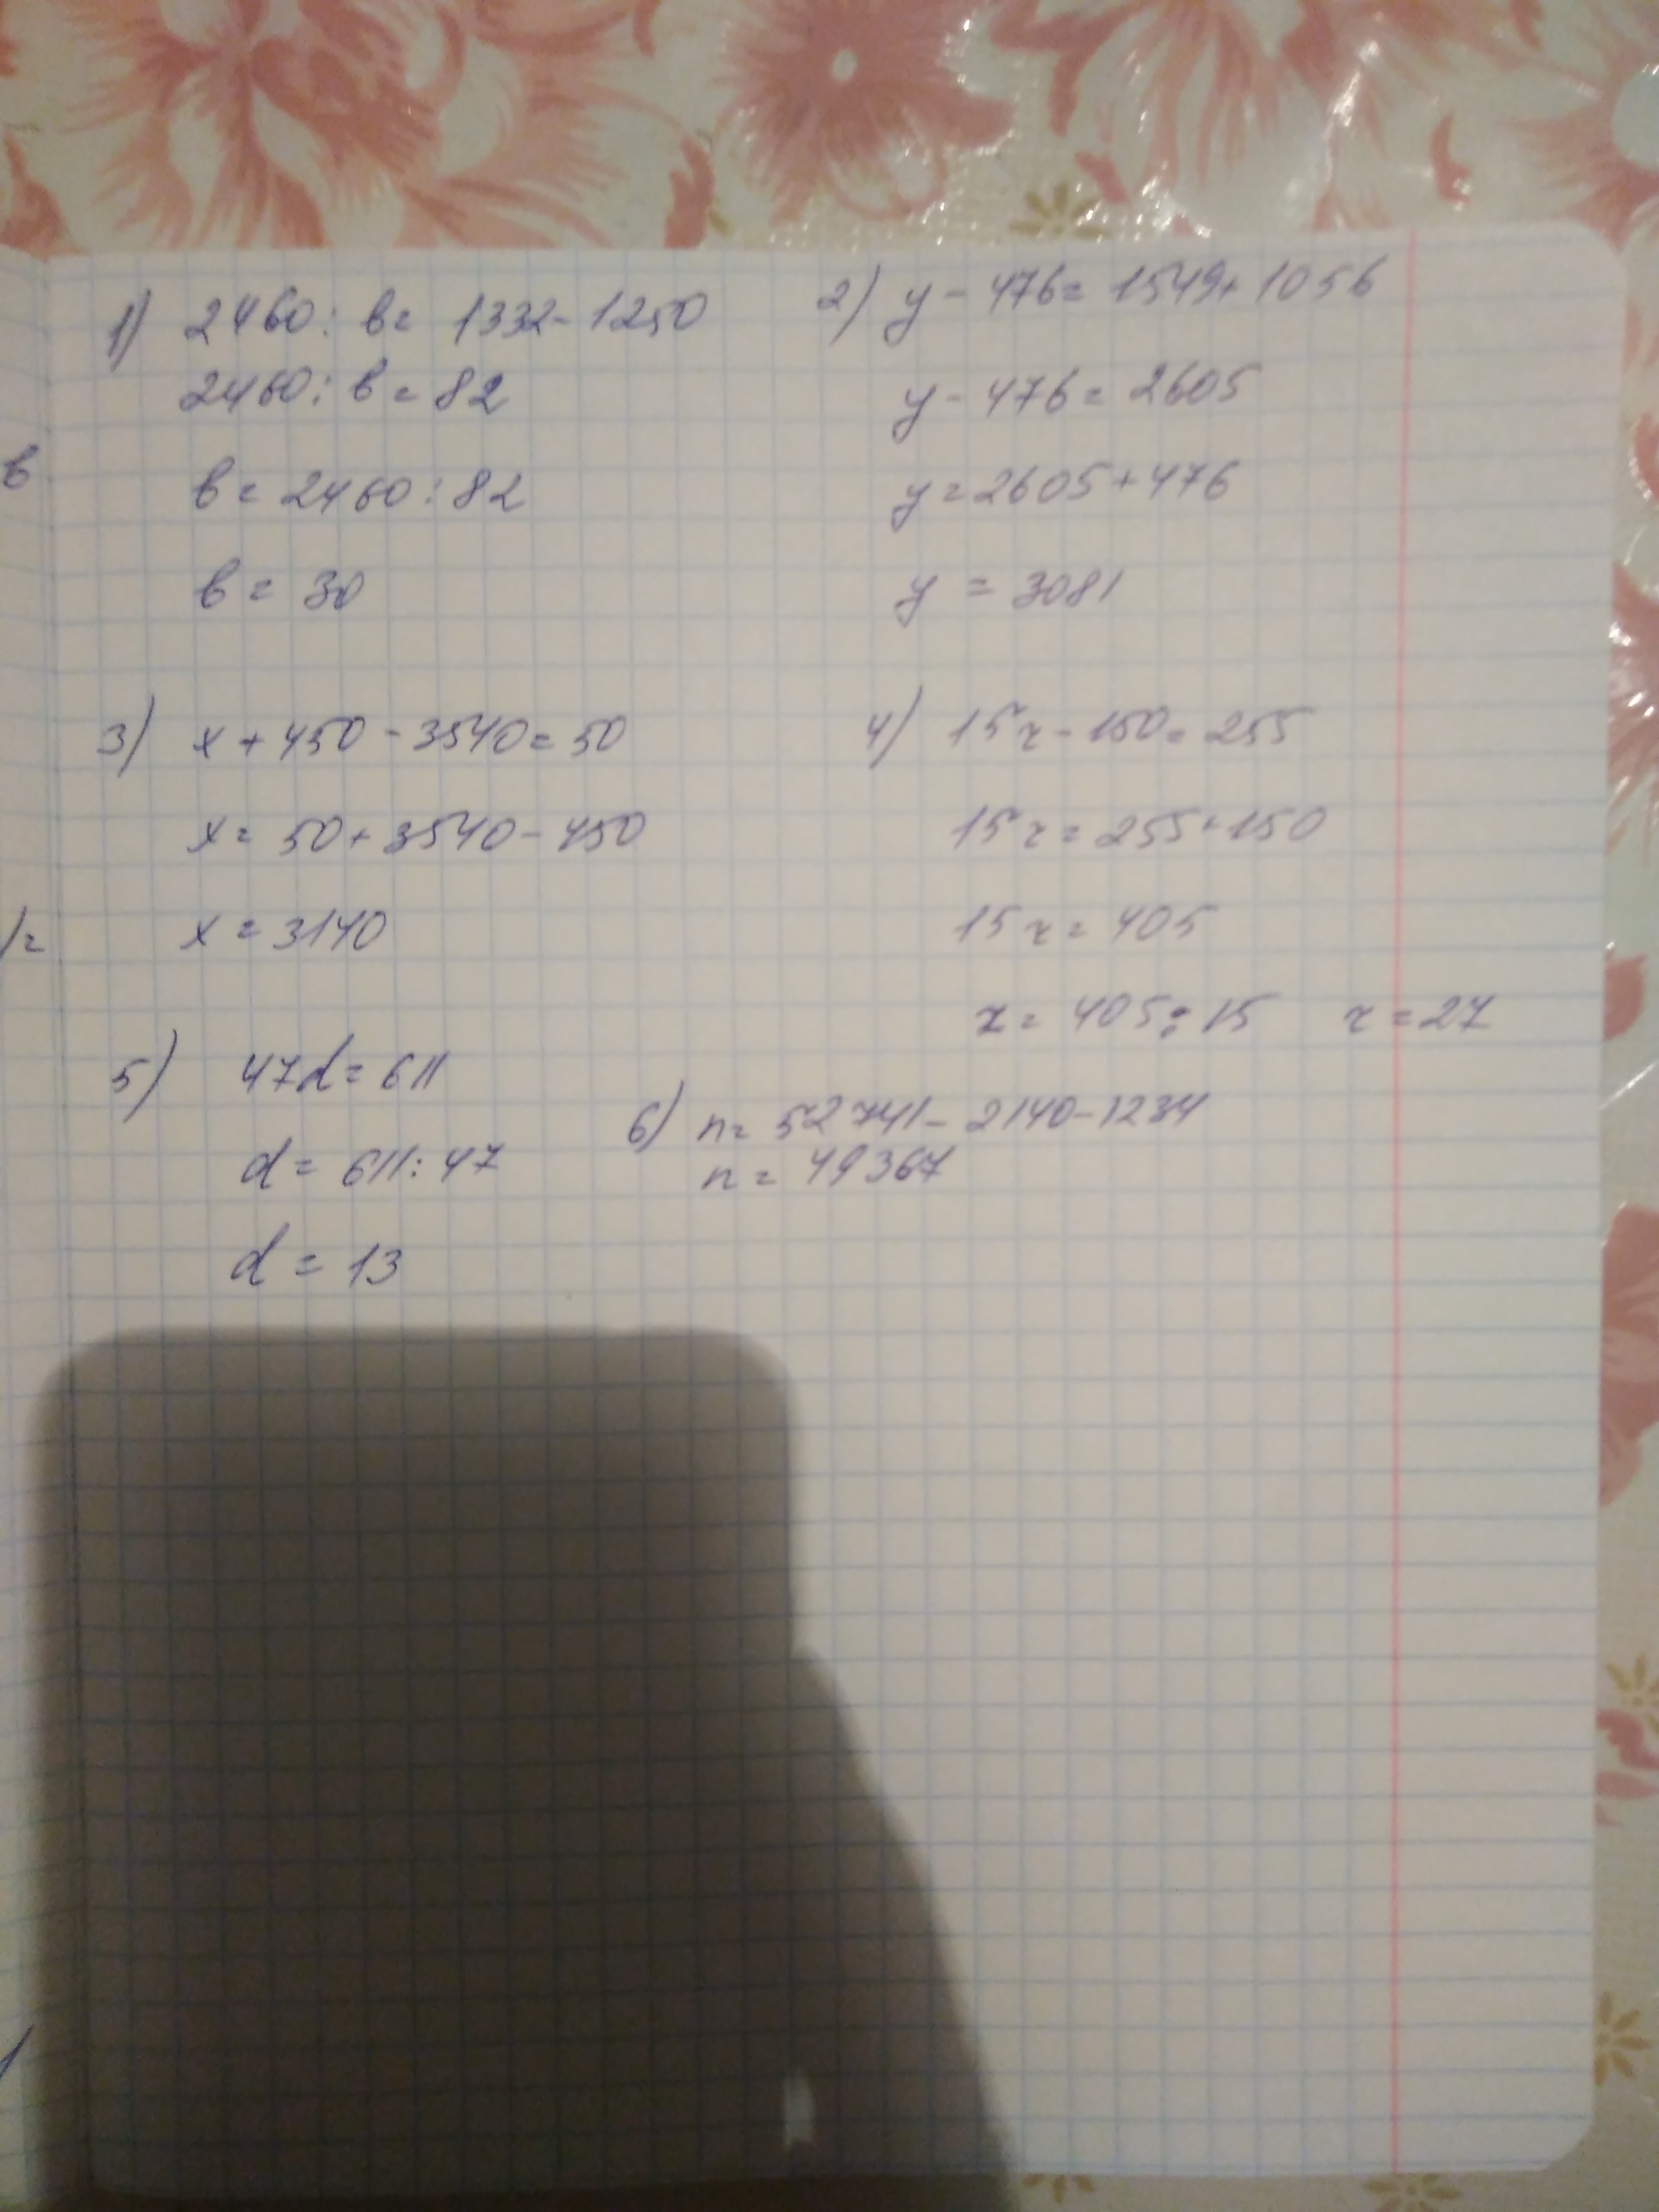 1) 2460 : в = 1332 - 1250
2460 : в = 82
в = 2460 : 82
в = 30
2) y - 476 = 1549 + 1056
y - 476 = 2605
y = 2605 + 476
y = 3081
3) x + 450 - 3540 = 50
x = 50 + 3540 - 450
x = 3140
4) 15x - 150 = 255
15x = 255 + 150
15x = 405
x = 405 : 15 x = 27
5) 47d = 611
d = 611 : 47
d = 13
6) n = 52741 - 2140 - 1234
n = 49367
в